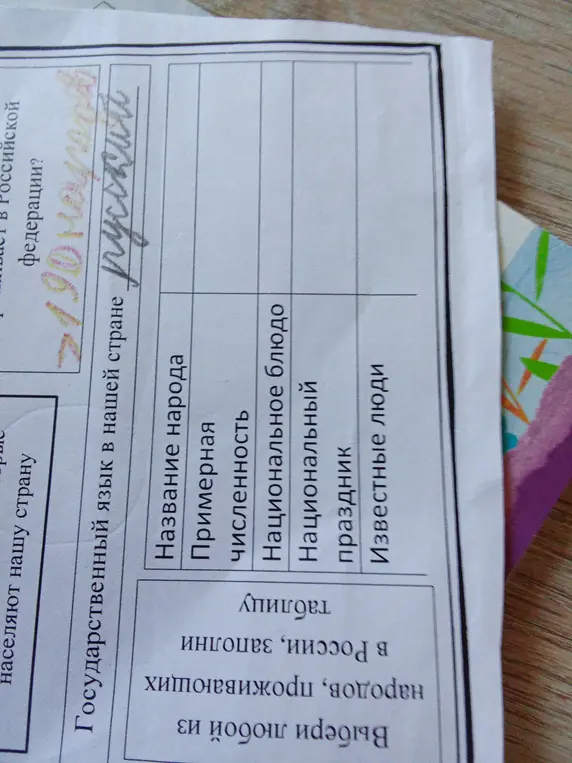 федерации?
>190 народов
Государственный язык в нашей стране русский
населяют нашу страну
Название народа
Примерная
численность
Национальное блюдо
Национальный
праздник
Известные люди
Выбери любой из
народов, проживающих
в России, заполни
таблицу